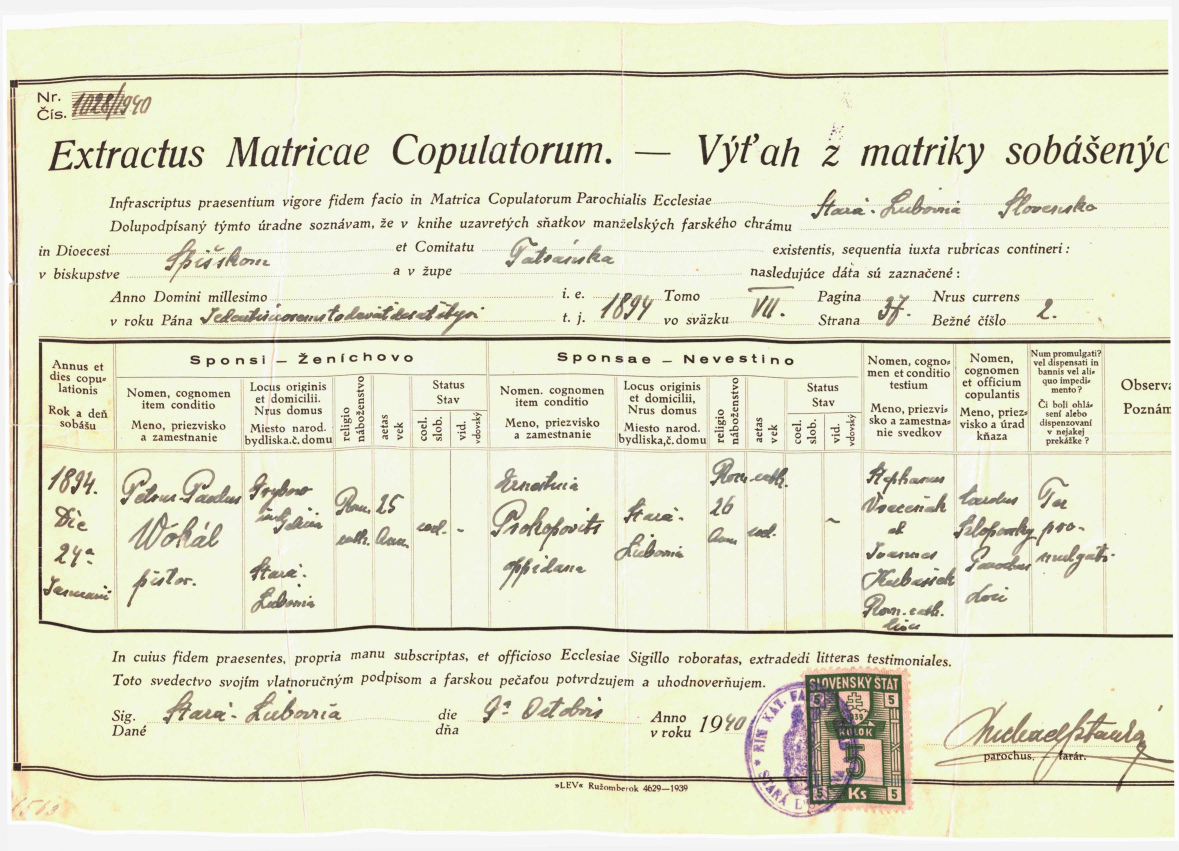 Nr.
Čís. 1028/1940
Extractus Matricae Copulatorum. — Výťah z matriky sobášenýc
Infrascriptus praesentium vigore fidem facio in Matrica Copulatorum Parochialis Ecclesiae
Stará-Ľubovňa Slovensko
Dolupodpísaný týmto úradne soznávam, že v knihe uzavretých sňatkov manželských farského chrámu
in Dioecesi et Comitatu existentis, sequentia iuxta rubricas contineri:
Spišskom Tatránska
v biskupstve a v župe nasledujúce dáta sú zaznačené:
Anno Domini millesimo i. e. 1894 Tomo VII. Pagina 37. Nrus currens 2.
v roku Pána t. j. vo sväzku Strana Bežné číšlo
Annus et
dies copu-
lationis
Rok a deň
sobášu
Sponsi — Ženíchovo
Nomen, cognomen
item conditio
Meno, priezvisko
a zamestnanie
Locus originis
et domicilii.
Nrus domus
Miesto narod.
bydliska,č. domu
religio
náboženstvo
aetas
vek
Status
Stav
coel.
slob.
vid.
vdovský
Sponsae — Nevestino
Nomen. cognomen
item conditio
Meno, priezvisko
a zamestnanie
Locus originis
et domicilii.
Nrus domus
Miesto narod.
bydliska,č. domu
religio
náboženstvo
aetas
vek
Status
Stav
coel.
slob.
vid.
vdovský
Nomen, cogno-
men et conditio
testium
Meno, priezvi-
sko a zamestna-
nie svedkov
Nomen,
cognomen
et officium
copulantis
Meno, priez-
visko a úrad
kňaza
Num promulgati?
vel dispensati in
bannis vel ali-
quo impedi-
mento?
Či boli ohlá-
sení alebo
dispenzovaní
v nejakej
prekážke?
Observa
Poznám
1894.
Die
24ª
Januarii
Petrus-Paulus
Wokál
pistor.
Grybow
Stará-
Ľubovňa
Rom.
cath.
25
Ann.
coel.
-
Ernestina
Prokopovits
oppidana
Stará-
Ľubovňa
Rom. cath.
26
Ann.
coel.
-
Stephanus
et
Joannes
Rom. cath.
Parochus
Loci
Ter
pro-
mulgati.
In cuius fidem praesentes, propria manu subscriptas, et officioso Ecclesiae Sigillo roboratas, extradedi litteras testimoniales.
Toto svedectvo svojím vlatnoručným podpisom a farskou pečaťou potvrdzujem a uhodnoverňujem.
Sig. Stará-Ľubovňa die 9ª Octobris Anno 1940
Dané dňa v roku
RÍM. KAT. STARÁ
SLOVENSKÝ ŠTÁT
5 5
KOLOK
5
5 Ks 5
parochus, farár.
»LEV« Ružomberok 4629—1939